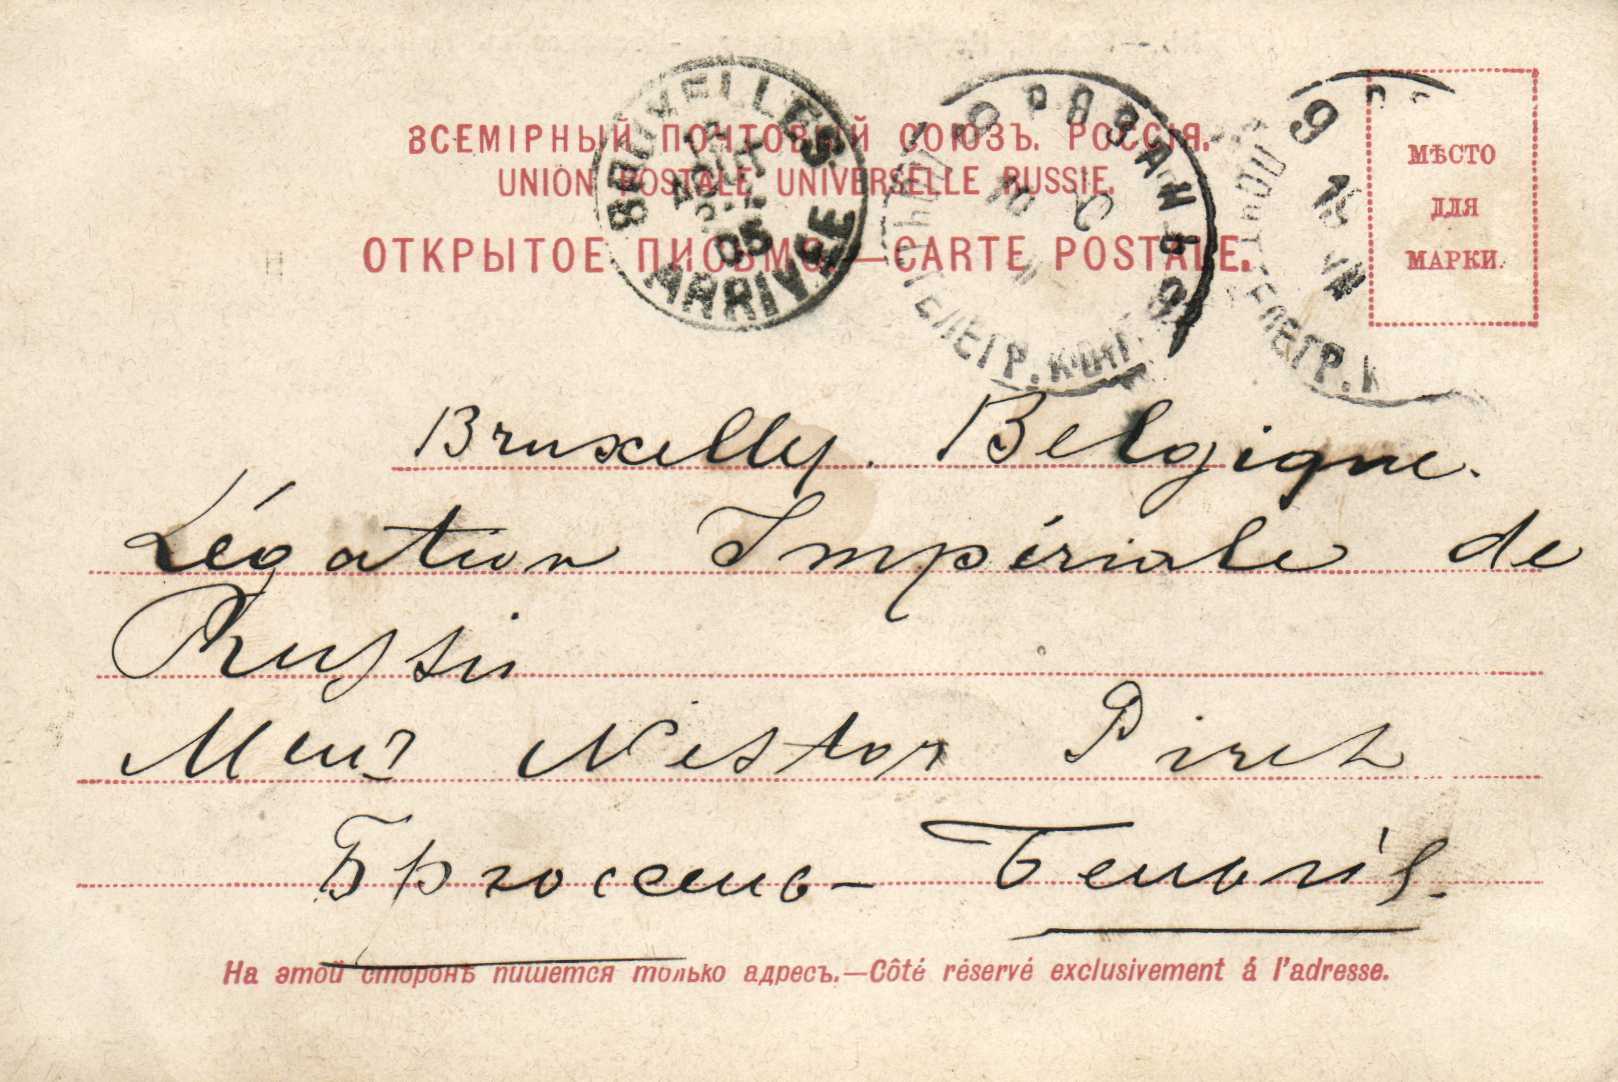 ВСЕМІРНЫЙ ПОЧТОВЫЙ СОЮЗЪ. РОССІЯ.
UNION POSTALE UNIVERSELLE RUSSIE.
ОТКРЫТОЕ ПИСЬМО.—CARTE POSTALE.
МѢСТО
ДЛЯ
МАРКИ.
BRUXELLES
AOUT
05
ARRIVÉE
РЯЗАНЬ
ТЕЛЕГР. КОНТ
9
ПОЧТ ТЕЛЕГР. К
Bruxelles. Belgique.
Légation Impériale de
Russie
Nestor Pirch
Брюссель – Бельгія.
На этой сторонѣ пишется только адресъ.—Côté réservé exclusivement á l'adresse.